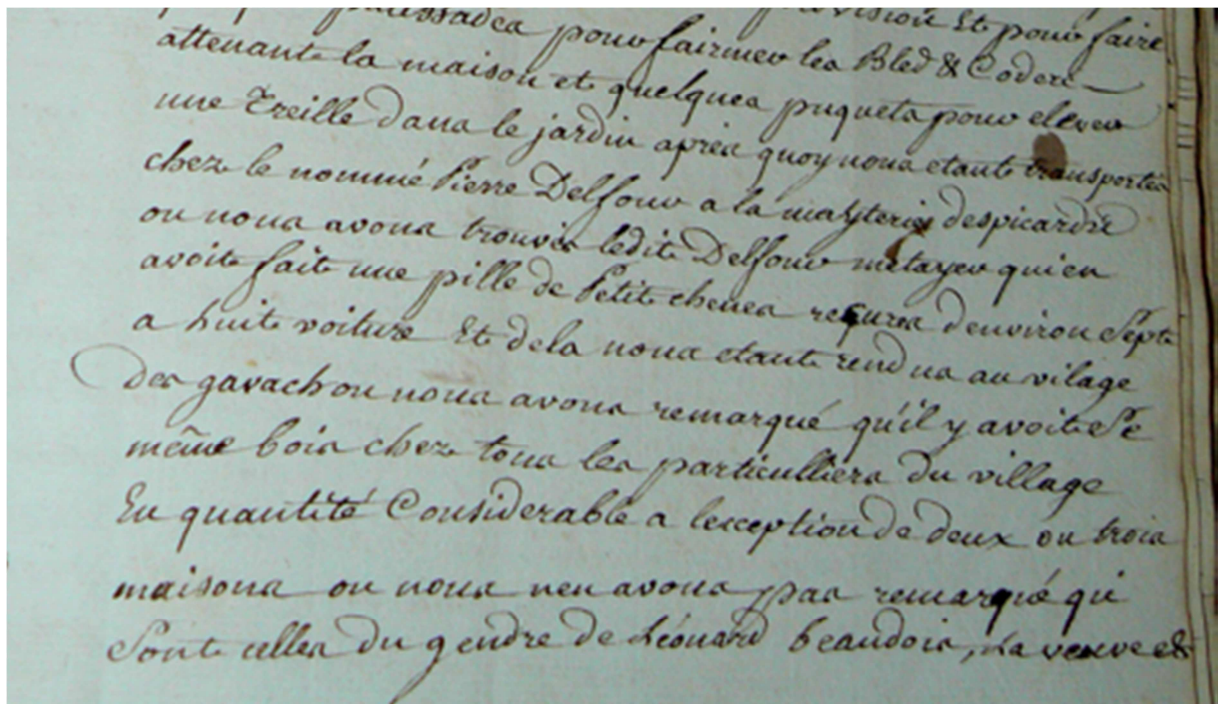 pallissadea pour fairmer les Bled & Coderc
attenante la maison et quelques piquets pour elever
une Treille dans le jardin après quoy nous etants transportés
chez le nommé Pierre Delfour a la mayterie despicardie
ou nous avons trouvés ledit Delfour metayer qui en
avoit fait une pille de Petit chenes denviron Sept
a huit voiture Et dela nous etants rendus au vilage
Des gavachou nous avons remarqué qu'il y avoit de
même bois chez tous les particulliers du village
En quantité Considerable a lexception de deux ou trois
maisons ou nous nen avons pas remarqué qui
Sont celles du gendre de Léonard beaudois, La veuve et